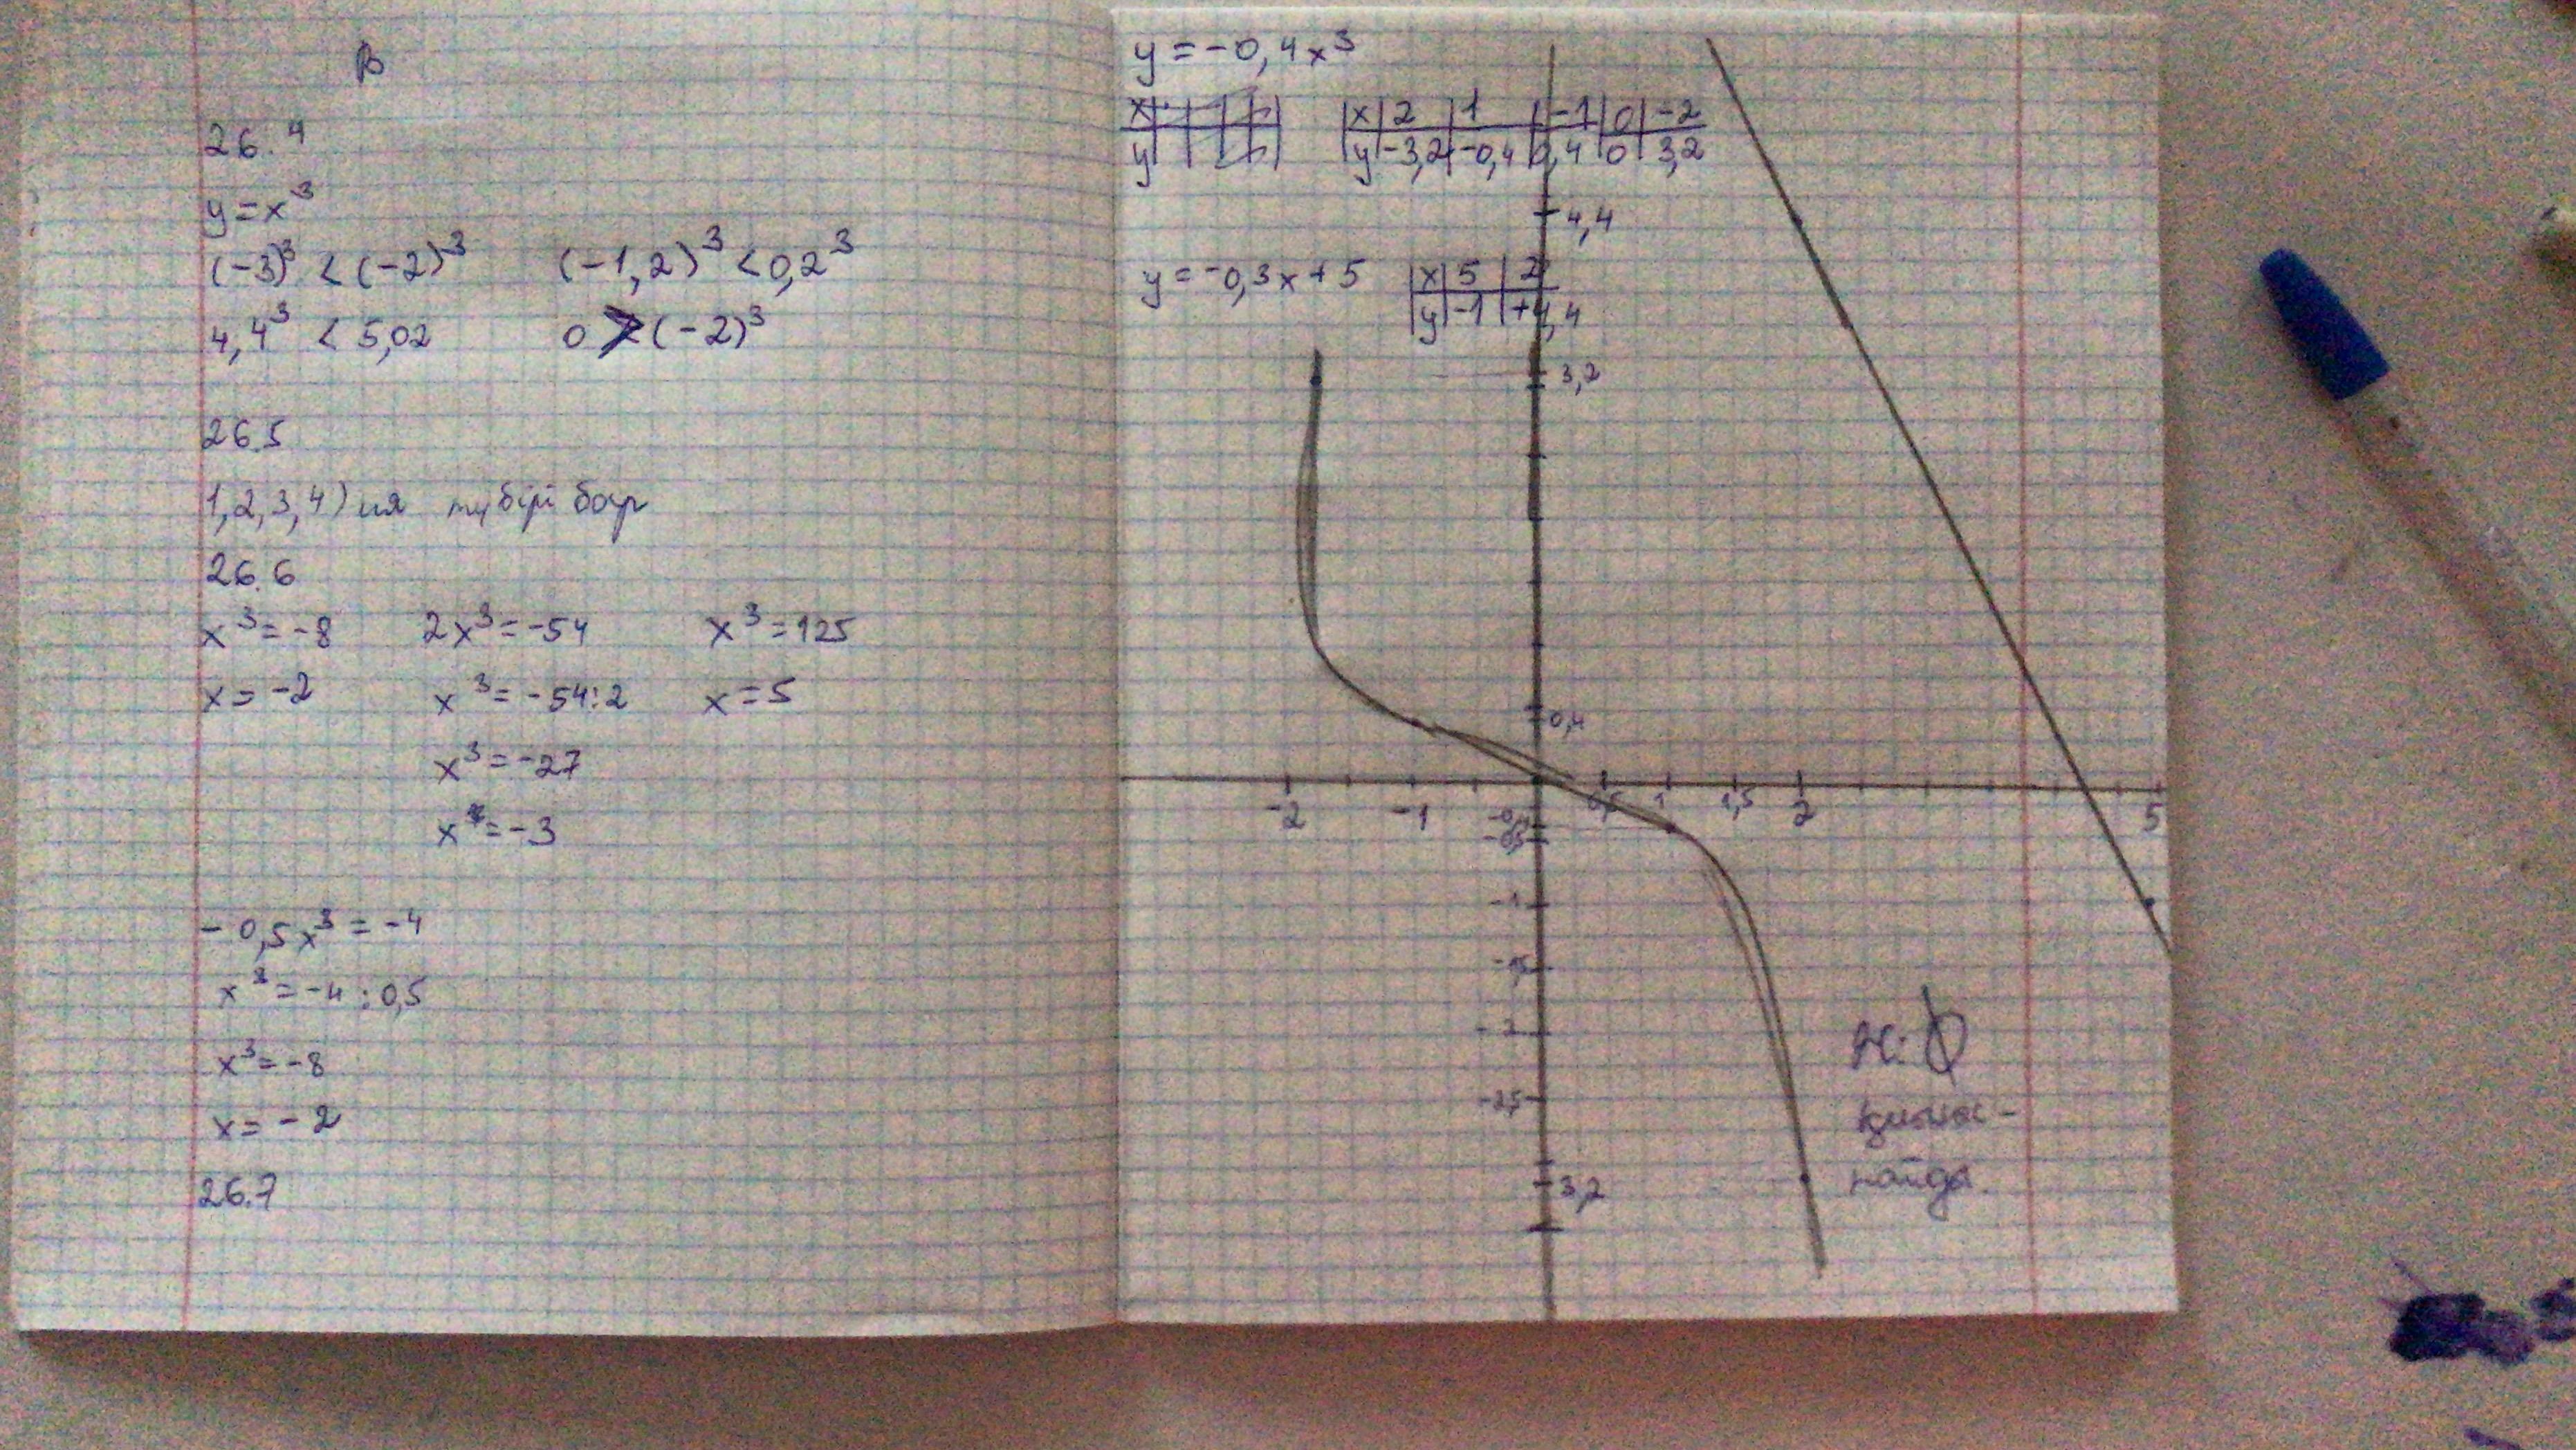 В
26.4
y=x³
(-3)³ < (-2)³ (-1,2)³ < 0,2³
4,4³ < 5,02 0 > (-2)³
26.5
1,2,3,4) ия түбірі бар
26.6
x³=-8 2x³=-54 x³=125
x=-2 x³=-54:2 x=5
x³=-27
x=-3
-0,5x³=-4
x³=-4:0,5
x³=-8
x=-2
26.7
y=-0,4x³
x
y
x 2 1 -1 0 -2
y -3,2 -0,4 0,4 0 3,2
4,4
y=-0,3x+5
x 5 2
y -1 +4,4
3,2
0,4
-2 -1 0,5 1 1,5 2 5
-0,4
-0,5
-1
-1,5
-2
-2,5
3,2
Ж:
қиылыс-
пайда.